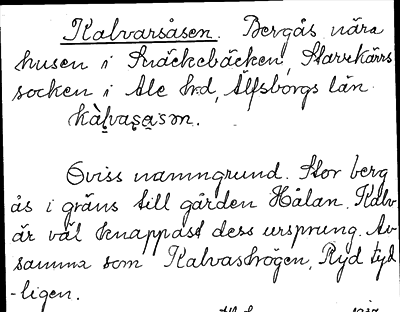 Kalvarsåsen. Bergås nära
husen i Snäckebäcken, Starrkärrs
socken i Ale hd, Älfsborgs län.
kàlvasa̱sơn.
Oviss namngrund. Stor berg
ås i gräns till gården Hålan. Kalv
är väl knappast dess ursprung. Av
samma som Kalvashögen, Ryd tyd
-ligen.